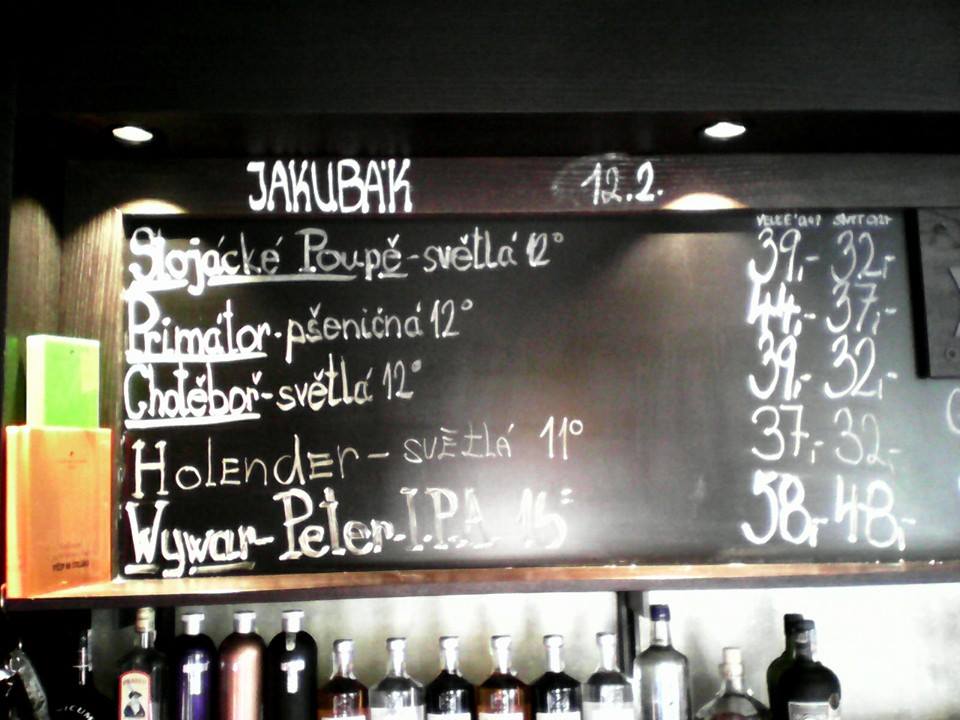 JAKUBÁK 12.2.
Slojácké Poupě - světlá 12° 39,- 32,-
Primátor - pšeničná 12° 44,- 37,-
Chotěboř - světlá 12° 39,- 32,-
Holender - světlá 11° 37,- 32,-
Wywar - Peter - I.P.A 15° 58,- 48,-